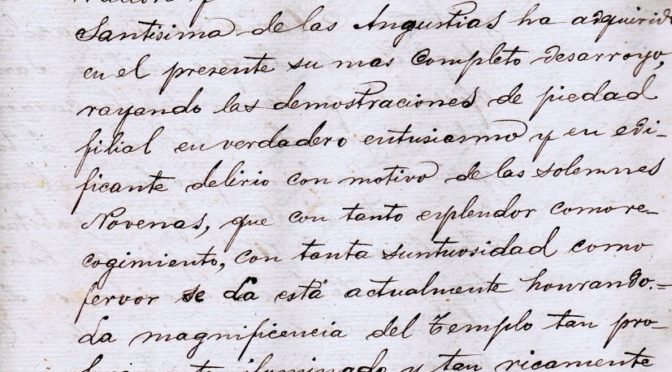 Santisima de las Angustias ha adquirido
en el presente su mas completo desarroyo,
rayando las demostraciones de piedad
filial en verdadero entusiasmo y en edi-
ficante delirio con motivo de las solemnes
Novenas, que con tanto esplendor como re-
cogimiento, con tanta suntuosidad como
fervor se la está actualmente honrando.-
La magnificencia del Templo tan pro-
iluminado y tan ricamente